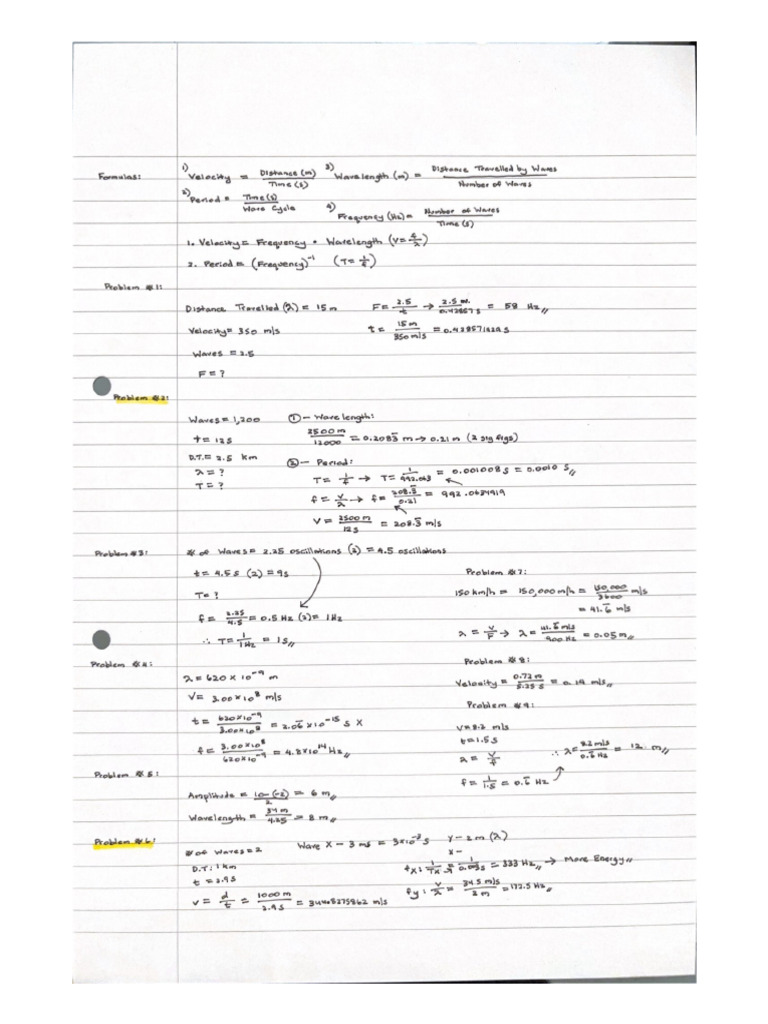 Formulas:
1) Velocity = Distance (m) / Time (s)
3) Wavelength (m) = Distance Travelled by Waves / Number of Waves
2) Period = Time (s) / Wave Cycle
4) Frequency (Hz) = Number of Waves / Time (s)
1. Velocity = Frequency • Wavelength
2. Period = (Frequency)⁻¹ (T = 1/f)
Problem #1:
Distance Travelled (λ) = 15 m
Velocity = 350 m/s t = 15 m / 350 m/s
Waves = 2.5
F = ?
Problem #2:
Waves = 1,200 ① – Wavelength:
t = 12 s 2500 m / 12000 = 0.2083̅ m → 0.21 m (2 sig figs)
D.T. = 2.5 km
λ = ? ② – Period:
T = ? T = 1/f → T = 1/992.063 = 0.001008 s = 0.0010 s
f = v/λ → f = 208.3̅ / 0.21 = 992.0634919
V = 2500 m / 12 s = 208.3̅ m/s
Problem #3:
# of Waves = 2.25 oscillations (2) = 4.5 oscillations
t = 4.5 s (2) = 9 s
T = ?
f = 2.25 / 4.5 = 0.5 Hz (2) = 1 Hz
∴ T = 1 / 1 Hz = 1 s
Problem #4:
λ = 620 × 10⁻⁹ m
V = 3.00 × 10⁸ m/s
t = 620×10⁻⁹ / 3.00×10⁸ = 2.06̅ × 10⁻¹⁵ s X
f = 3.00×10⁸ / 620×10⁻⁹ = 4.8×10¹⁴ Hz
Problem #5:
Amplitude = 10-(-2) / 2 = 6 m
Wavelength = 34 m / 4.25 = 8 m
Problem #6:
# of Waves = 2 Wave X – 3 ms = 3×10⁻³ s Y – 2 m (λ)
X –
D.T: 1 km
t = 2.9 s
v = d/t = 1000 m / 2.9 s
fx: 1/Tx → = 333 Hz → More Energy
fy: v/λ = = 172.5 Hz
Problem #7:
150 km/h = 150,000 m/h = 150,000 / 3600 m/s
= 41.6̅ m/s
λ = v/F → λ = 41.6̅ m/s / 900 Hz = 0.05 m
Problem #8:
Velocity = 0.73 m / 5.25 s = 0.14 m/s
Problem #9:
V = 8.2 m/s
t = 1.5 s
λ = v/f ∴ λ = 8.2 m/s / 0.6̅ Hz = 12. m
f = 1 / 1.5 = 0.6̅ Hz